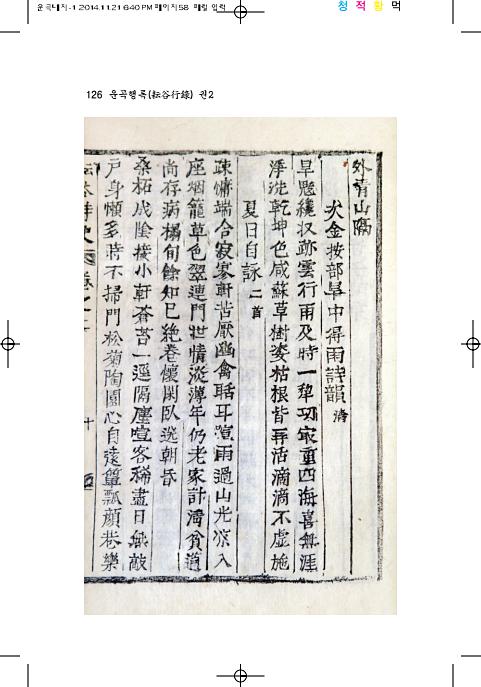 운곡대지-1 2014.11.21 6:40 PM 페이지58
청 적 황 먹
126 운곡행록(耘谷行錄) 권2
外青山隔
次金按部旱中得雨詩韻
旱魃纔収跡雲行雨及時一犂功冣重四海喜無涯
淨洗乾坤色咸蘇草樹姿枯根皆再活滴滴不虛施
夏日自詠 二首
疎慵端合寂寥軒苦厭幽禽聒耳喧雨過山光濃入
座烟籠草色翠連門世情淡薄年仍老家計淸貧道
尚存病榻旬餘知已絶卷懷閑臥送朝昏
桑柘成陰接小軒蒼苔一逕隔塵喧客稀盡日無敲
戶身懶多時不掃門松菊陶園心自遠簞瓢顔巷樂